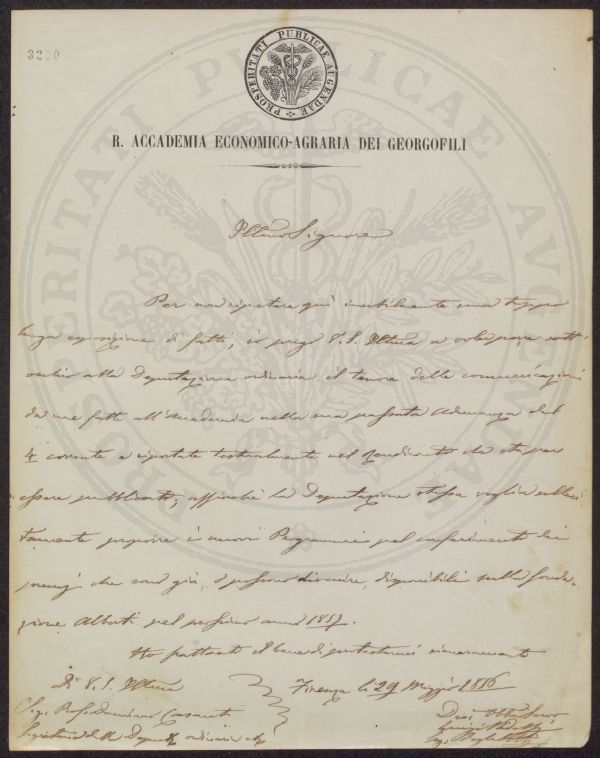 3200
PROSPERITATI PUBLICAE AUGENDAE
R. ACCADEMIA ECONOMICO-AGRARIA DEI GEORGOFILI
Illmo Signore
Per non ripetere quì inutilmente una troppo
lunga esposizione di fatti, io prego V. S. Illma a voler porre sott'
occhio alla Deputazione ordinaria il tenore delle comunicazioni
da me fatte all'Accademia nella sua passata Adunanza del
4 corrente e riportate testualmente nel Rendiconto che sta per
essere pubblicato; affinchè la Deputazione stessa voglia solleci-
tamente proporre i nuovi Programmi pel conferimento dei
premj che sono già, o possono divenire, disponibili sulla fonda-
zione Alberti pel prossimo anno 1857.
Ho frattanto il bene di protestarmi sinceramente
Di V. S. Illma
Firenze li 29 1856
Sig. Prof.
Segretario della Deputaz ordinaria